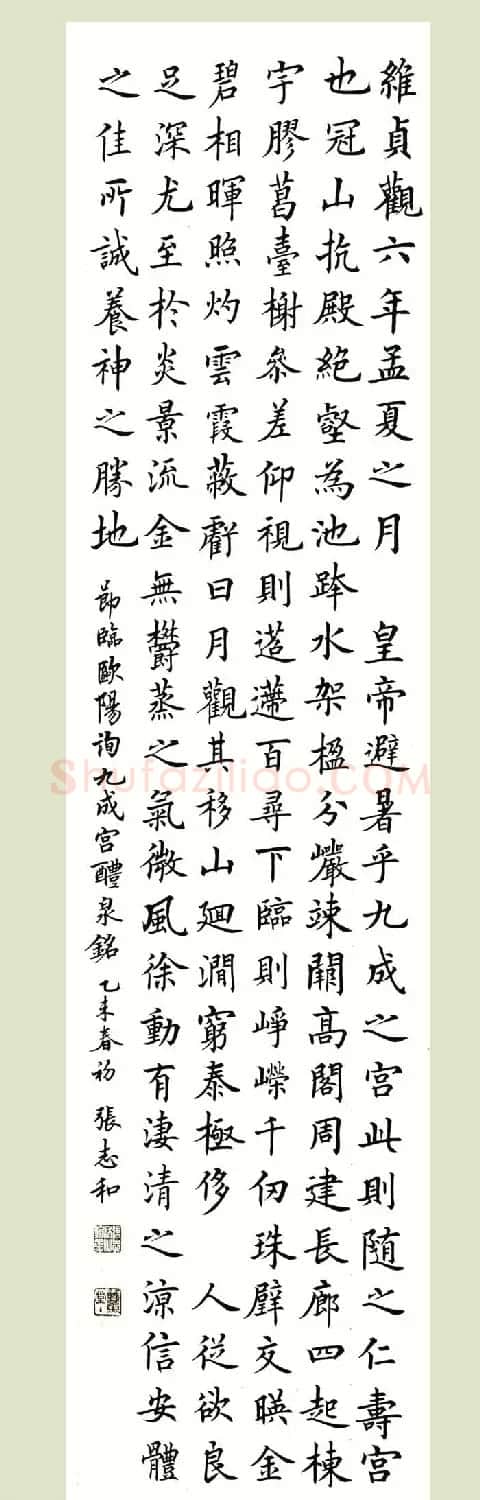 維貞觀六年孟夏之月 皇帝避暑乎九成之宮此則随之仁壽宮
也冠山抗殿絶壑為池跨水架楹分巖竦闕高閣周建長廊四起棟
宇膠葛臺榭參差仰視則迢遰百尋下臨則崢嶸千仞珠壁交暎金
碧相暉照灼雲霞蔽虧日月觀其移山廻澗窮泰極侈 人從欲良
足深尤至於炎景流金無欝蒸之氣微風徐動有淒清之涼信安體
之佳所誠養神之勝地 節臨歐陽詢九成宮醴泉銘 乙未春初 張志和
Shufaziliao.COM